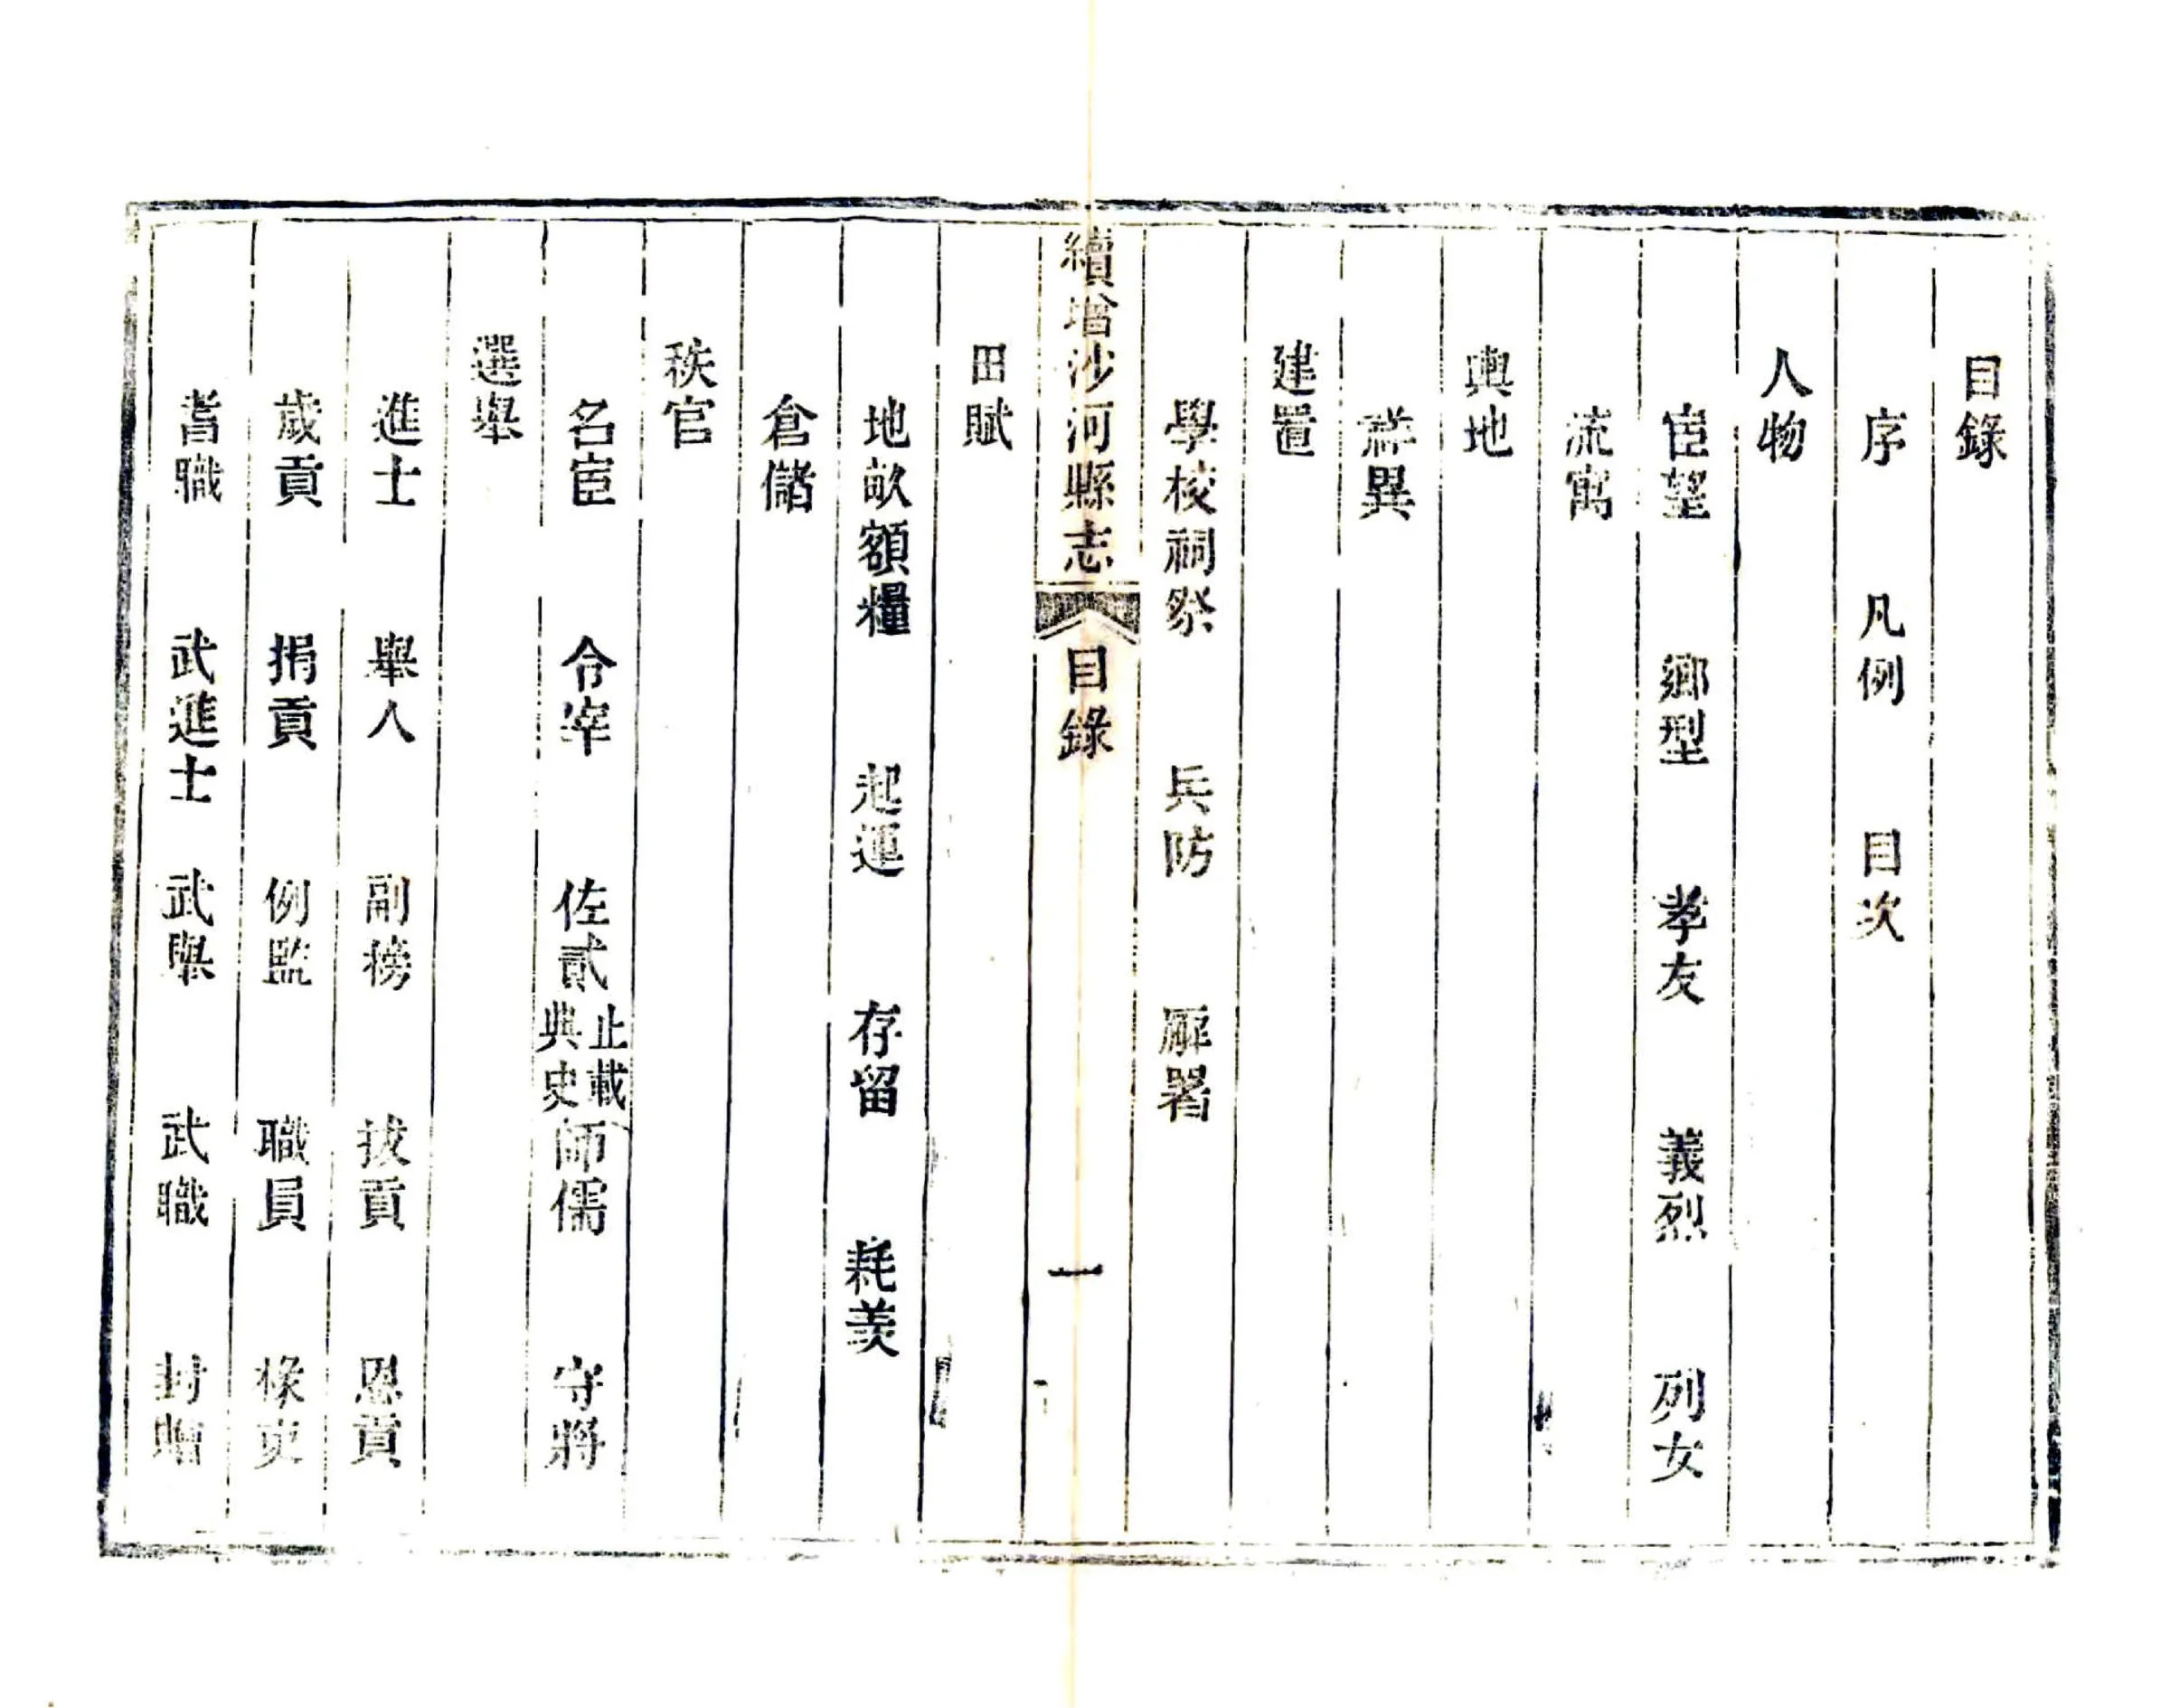 目錄
序 凡例 目次
人物
宦望 鄉型 孝友 義烈 列女
流寓
輿地
祥異
建置
學校祠祭 兵防 廨署
續增沙河縣志 目錄 一
田賦
地畝額糧 起運 存留 耗羨
倉儲
秩官
名宦 令宰 佐貳止載典史 師儒 守將
選舉
進士 舉人 副榜 拔貢 恩貢
歲貢 捐貢 例監 職員 掾吏
耆職 武進士 武舉 武職 封贈